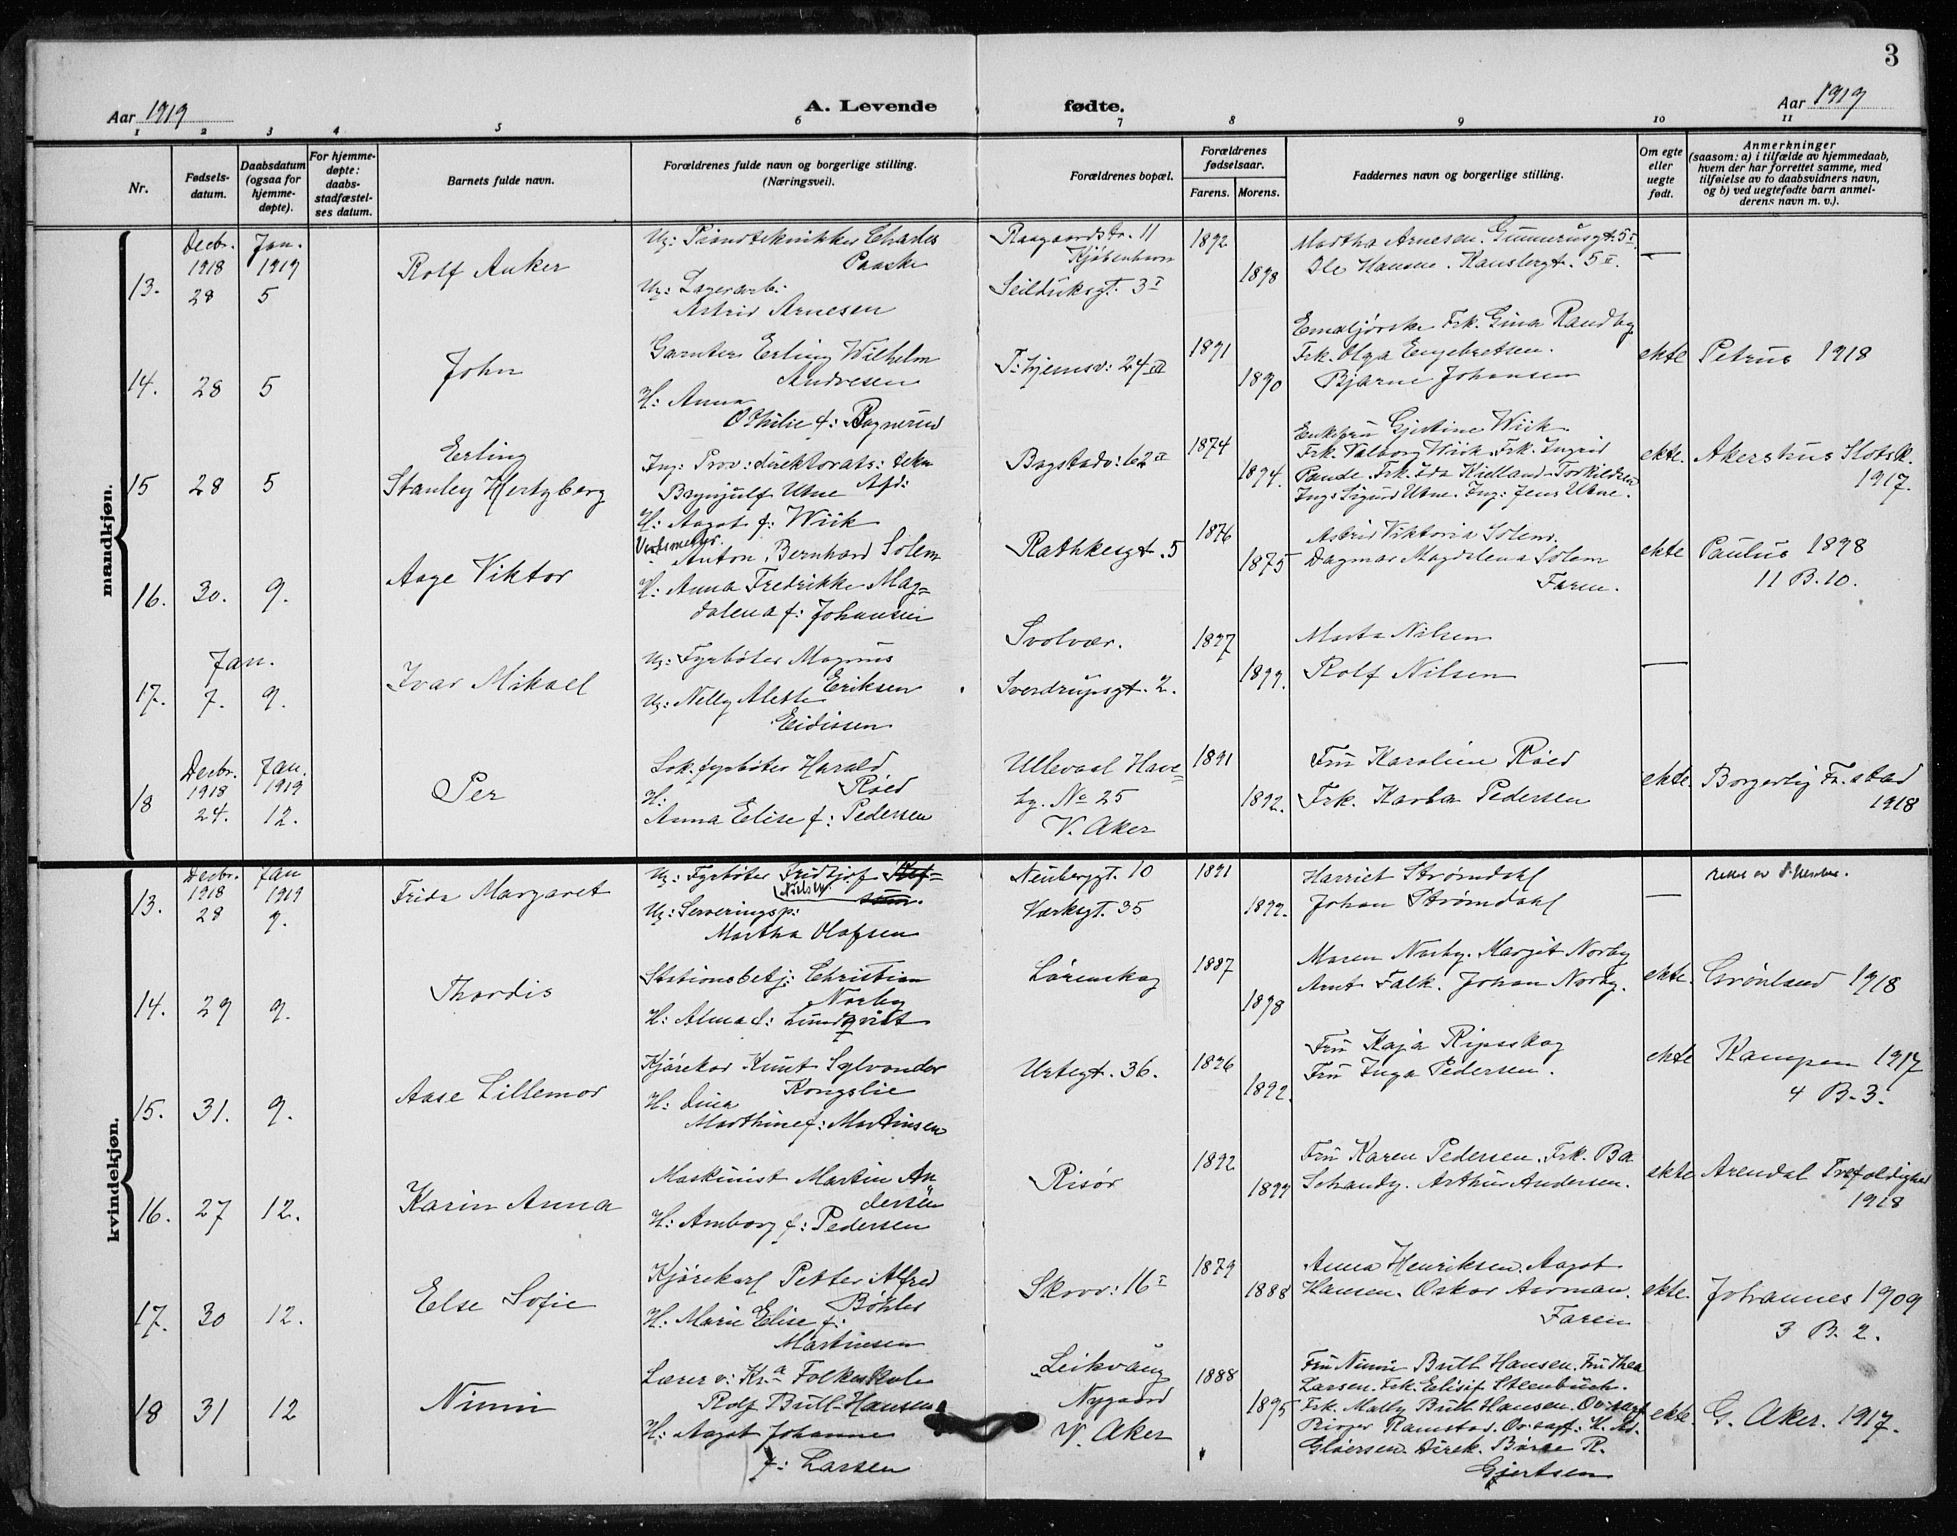 3
Aar 1919
A. Levende fødte.
Aar 1919
1 2 3 4 5 6 7 8 9 10 11
Nr.
Fødsels-
datum.
Daabsdatum
(ogsaa for
hjemme-
døpte).
For hjemme-
døpte:
daabs-
stadfæstel-
ses datum.
Barnets fulde navn.
Forældrenes fulde navn og borgerlige stilling.
(Næringsvei).
Forældrenes bopæl.
Forældrenes
fødselsaar.
Farens. Morens.
Faddernes navn og borgerlige stilling.
Om egte
eller
uegte
født.
Anmerkninger
(saasom: a) i tilfælde av hjemmedaab,
hvem der har forrettet samme, med
tilføielse av to daabsvidners navn,
og b) ved uegtefødte barn anmel-
derens navn m. v.).
mandkjøn.
13.
Decbr.
1918
28
Jan.
1919
5
Rolf Anker
Ug: Tandtekniker Charles
Paaske
Ug: Lagerarb:
Astrid Arnesen
Raagaardstr. 11
Kjøbenhavn
Seilduksgt. 3 I
1892
1898
Martha Arnesen. Gunnerusgt. 5 I
Ole Hansen. Hausbergt. 5 II.
—
14.
28
5
John
Gartner Erling Wilhelm
Andresen
H: Anna
Othilie f: Rognerud
T:hjemsv: 24
1891
1890
Frk. Gina Randby
Frk. Olga Engebretsen.
Bjarne Johansen
ekte
Petrus 1918
15
28
5
Erling
Stanley Hertzberg
Ing: Prov: direktorats: tekn
Afd:
Utne
H: Aagot f: Wiik
Bogstadv: 62 II
1874
1894.
Enkefru Gjertine Wiik.
Frk. Valborg Wiik. Frk. Ingrid
Paude. Frk. Ida Kielland-Torkildsen
Ing: Sigurd Utne. Ing: Jens Utne.
ekte.
Akershus Slotsk.
1917.
16.
30.
9.
Aage Viktor
Anton Bernhard Solem
H: Anna Fredrikke Mag=
dalena f: Johansen
Rathkesgt. 5
1876
1875
Astrid Viktoria Solem.
Dagmar Magdalena Solem
Faren.
ekte
Paulus 1898
11 B. 10.
17.
Jan.
7.
9.
Ivar Mikael
Ug: Fyrbøter Magnus
Eriksen
Ug: Nelly Alette
Eidissen
Svolvær.
Sverdrupsgt. 2.
1897
1899.
Marta Nilsen
Rolf Nilsen
—
18
Decbr.
1918
24.
Jan.
1919
12.
Per
Lok. fyrbøter Harald
Røed
H:
Anna Elise f: Pedersen
Ullevaal Have=
by. No 25
V. Aker
1891
1892.
Fru Karoline Røed
Frk. Karla Pedersen
ekte.
Borgerlig Fr.stad
1918
kvindekjøn.
13.
Decbr.
1918
28
Jan
1919
9.
Frida Margaret
Ug: Fyrbøter Fridtjof
Nielsen
Ug: Serveringsp:
Martha Olafsen
Neuberggt. 10
Værksgt. 35
1891
1899.
Harriet Strømdahl
Johan Strømdahl
—
14.
29
9.
Thordis
Stationsbetj: Christian
Norby
H: Alma f: Lundqvist
Lørenskog
1887
1898
Maren Norby. Margit Norby
Arnt Falk. Johan Norby.
ekte.
Grønland 1918
15.
31.
9.
Aase Lillemor
Kjørekar Knut Sylvander
Kongslie
H: Dina
Marthine f: Martinsen
Urtegt. 36.
1896
1892.
Fru Kaja Ripsskog
Fru Inga Pedersen.
ekte
Kampen 1917
4 B. 3.
16.
27
12.
Karin Anna
Maskinist Martin An
dersen
H: Amborg f: Pedersen
Risør
1892
1899
Fru Karen Pedersen. Frk. Ba
Arthur Andersen.
ekte
Arendal Trefoldighed
1918
17.
30
12.
Else Sofie
Kjørekarl Petter Alfred
Bøhler
H: Marie Elise f:
Martinsen
Skovv: 16 I
1879
1888
Anna Henriksen. Aagot
Hansen. Oskar Aarman.
Faren
ekte.
Johannes 1909
3 B. 2.
18
31
12
Ninni
Lærer v: Kr.a Folkeskole
Rolf Bull-Hansen
H: Aagot Johanne
f: Larsen
Leikvang
Nygaard
V. Aker
1888
1895
Fru Ninni Bull Hansen. Fru Thea
Larsen. Frk. Elisif Steenbuch.
Frk. Mally Bull Hansen. Ovrettsf
Birger Ramstad. Ovrsagf: H. Ad.
Gløersen. Direk. Børge R.
Gjertsen
ekte.
G. Aker. 1917.